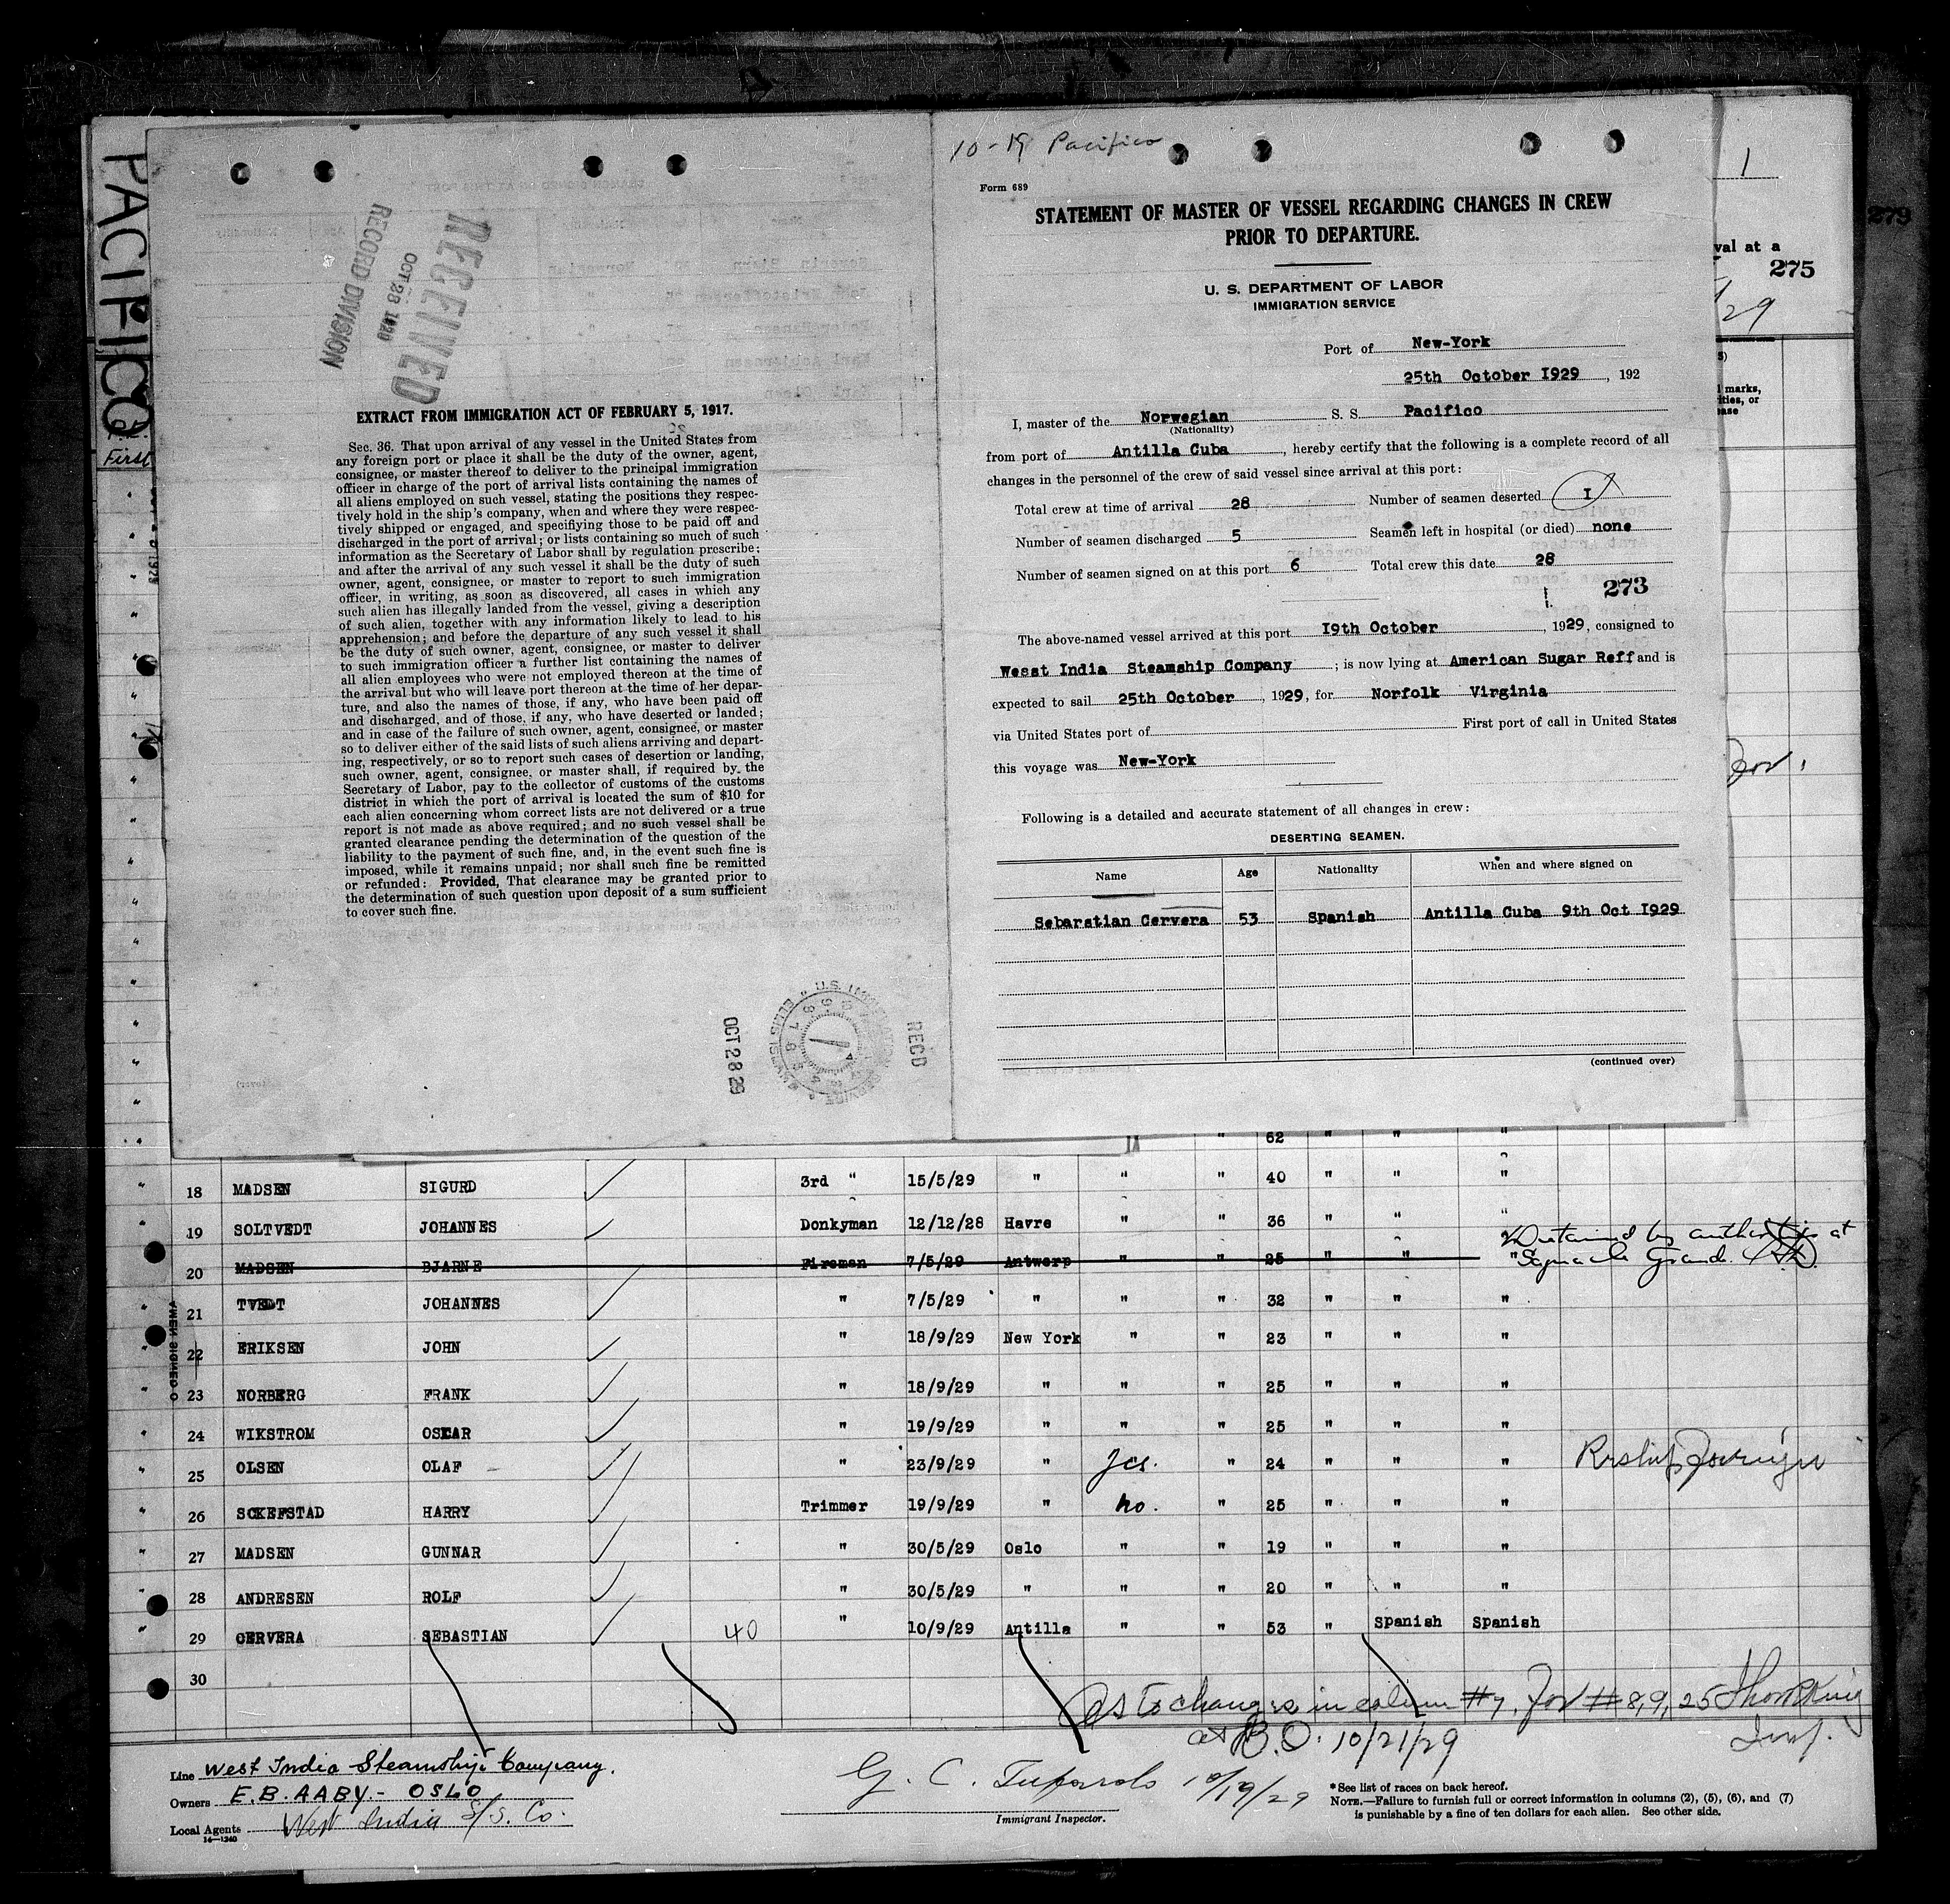 PACIFICO
First
RECEIVED
OCT 28 1929
RECORD DIVISION
EXTRACT FROM IMMIGRATION ACT OF FEBRUARY 5, 1917.
Sec. 36. That upon arrival of any vessel in the United States from
any foreign port or place it shall be the duty of the owner, agent,
consignee, or master thereof to deliver to the principal immigration
officer in charge of the port of arrival lists containing the names of
all aliens employed on such vessel, stating the positions they respec-
tively hold in the ship's company, when and where they were respec-
tively shipped or engaged, and specifiying those to be paid off and
discharged in the port of arrival; or lists containing so much of such
information as the Secretary of Labor shall by regulation prescribe;
and after the arrival of any such vessel it shall be the duty of such
owner, agent, consignee, or master to report to such immigration
officer, in writing, as soon as discovered, all cases in which any
such alien has illegally landed from the vessel, giving a description
of such alien, together with any information likely to lead to his
apprehension; and before the departure of any such vessel it shall
be the duty of such owner, agent, consignee, or master to deliver
to such immigration officer a further list containing the names of
all alien employees who were not employed thereon at the time of
the arrival but who will leave port thereon at the time of her depar-
ture, and also the names of those, if any, who have been paid off
and discharged, and of those, if any, who have deserted or landed;
and in case of the failure of such owner, agent, consignee, or master
so to deliver either of the said lists of such aliens arriving and depart-
ing, respectively, or so to report such cases of desertion or landing,
such owner, agent, consignee, or master shall, if required by the
Secretary of Labor, pay to the collector of customs of the customs
district in which the port of arrival is located the sum of $10 for
each alien concerning whom correct lists are not delivered or a true
report is not made as above required; and no such vessel shall be
granted clearance pending the determination of the question of the
liability to the payment of such fine, and, in the event such fine is
imposed, while it remains unpaid; nor shall such fine be remitted
or refunded: Provided, That clearance may be granted prior to
the determination of such question upon deposit of a sum sufficient
to cover such fine.
OCT 28 29
RECD
10-19 Pacifico
Form 689
STATEMENT OF MASTER OF VESSEL REGARDING CHANGES IN CREW
PRIOR TO DEPARTURE.
U. S. DEPARTMENT OF LABOR
IMMIGRATION SERVICE
Port of New-York
25th October 1929, 192
I, master of the Norwegian S. S. Pacifico
(Nationality)
from port of Antilla Cuba, hereby certify that the following is a complete record of all
changes in the personnel of the crew of said vessel since arrival at this port:
Total crew at time of arrival 28 Number of seamen deserted I
Number of seamen discharged 5 Seamen left in hospital (or died) none
Number of seamen signed on at this port 6 Total crew this date 28
273
The above-named vessel arrived at this port I9th October, 1929, consigned to
Wesst India Steamship Company; is now lying at American Sugar Reff and is
expected to sail 25th October, 1929, for Norfolk Virginia
via United States port of First port of call in United States
this voyage was New-York
Following is a detailed and accurate statement of all changes in crew:
DESERTING SEAMEN.
Name Age Nationality When and where signed on
Sebarstian Cervera 53 Spanish Antilla Cuba 9th Oct I929
(continued over)
1
279
val at a
275
29
marks,
ities, or
ease
62 " " "
18 MADSEN SIGURD 3rd " 15/5/29 " " " 40 " " "
19 SOLTVEDT JOHANNES Donkyman 12/12/28 Havre " " 36 " " "
20 MADSEN BJARNE Fireman 7/5/29 Antwerp " " 25 " " Detained by authorities at
21 TVEDT JOHANNES " 7/5/29 " " " 32 " " "
22 ERIKSEN JOHN " 18/9/29 New York " " 23 " " "
23 NORBERG FRANK " 18/9/29 " " " 25 " " "
24 WIKSTROM OSKAR " 19/9/29 " " " 25 " " "
25 OLSEN OLAF " 23/9/29 " yes. " 24 " " "
26 SCKEFSTAD HARRY Trimmer 19/9/29 " no. " 25 " " "
27 MADSEN GUNNAR " 30/5/29 Oslo " " 19 " " "
28 ANDRESEN ROLF " 30/5/29 " " " 20 " " "
29 CERVERA SEBASTIAN 40 " 10/9/29 Antilla " " 53 " Spanish Spanish
30
As to changes in column #7, for #8,9, 25
at B.O. 10/21/29
Insp.
Line West India Steamship Company.
Owners E.B. AABY.- OSLO
Local Agents West India S/S. Co.
14-1240
G. C. 10/19/29
Immigrant Inspector.
*See list of races on back hereof.
NOTE.—Failure to furnish full or correct information in columns (2), (5), (6), and (7)
is punishable by a fine of ten dollars for each alien. See other side.